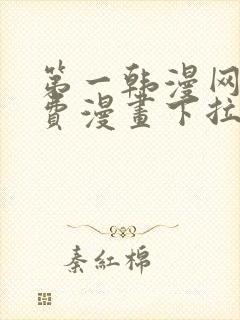 第一韩漫网
費漫畫下拉
秦紅棉